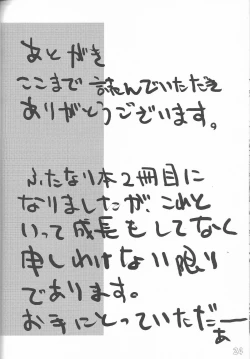 あとがき
ここまで読んでいただき
ありがとうございます。
ふたなり本2冊目に
なりましたが、これと
いって成長もしてなく
申しわけない限り
であります。
お手にとっていただーー
ぁ